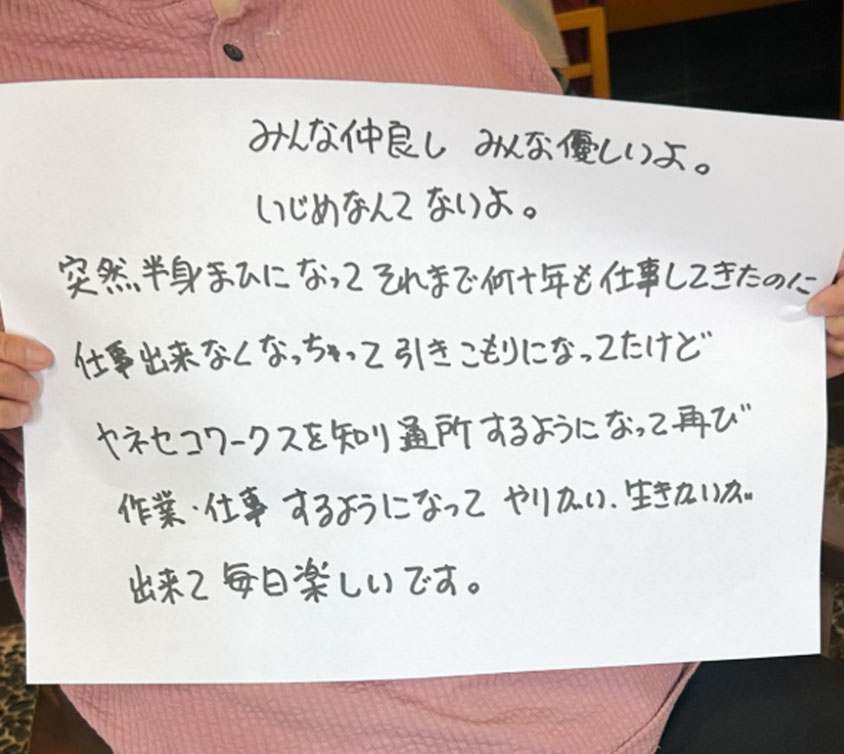 みんな仲良し みんな優しいよ。
いじめなんてないよ。
突然、半身まひになって それまで何十年も仕事してきたのに
仕事出来なくなっちゃって引きこもりになってたけど
ヤネセコワークスを知り通所するようになって再び
作業・仕事 するようになって やりがい、生きがいが
出来て 毎日楽しいです。